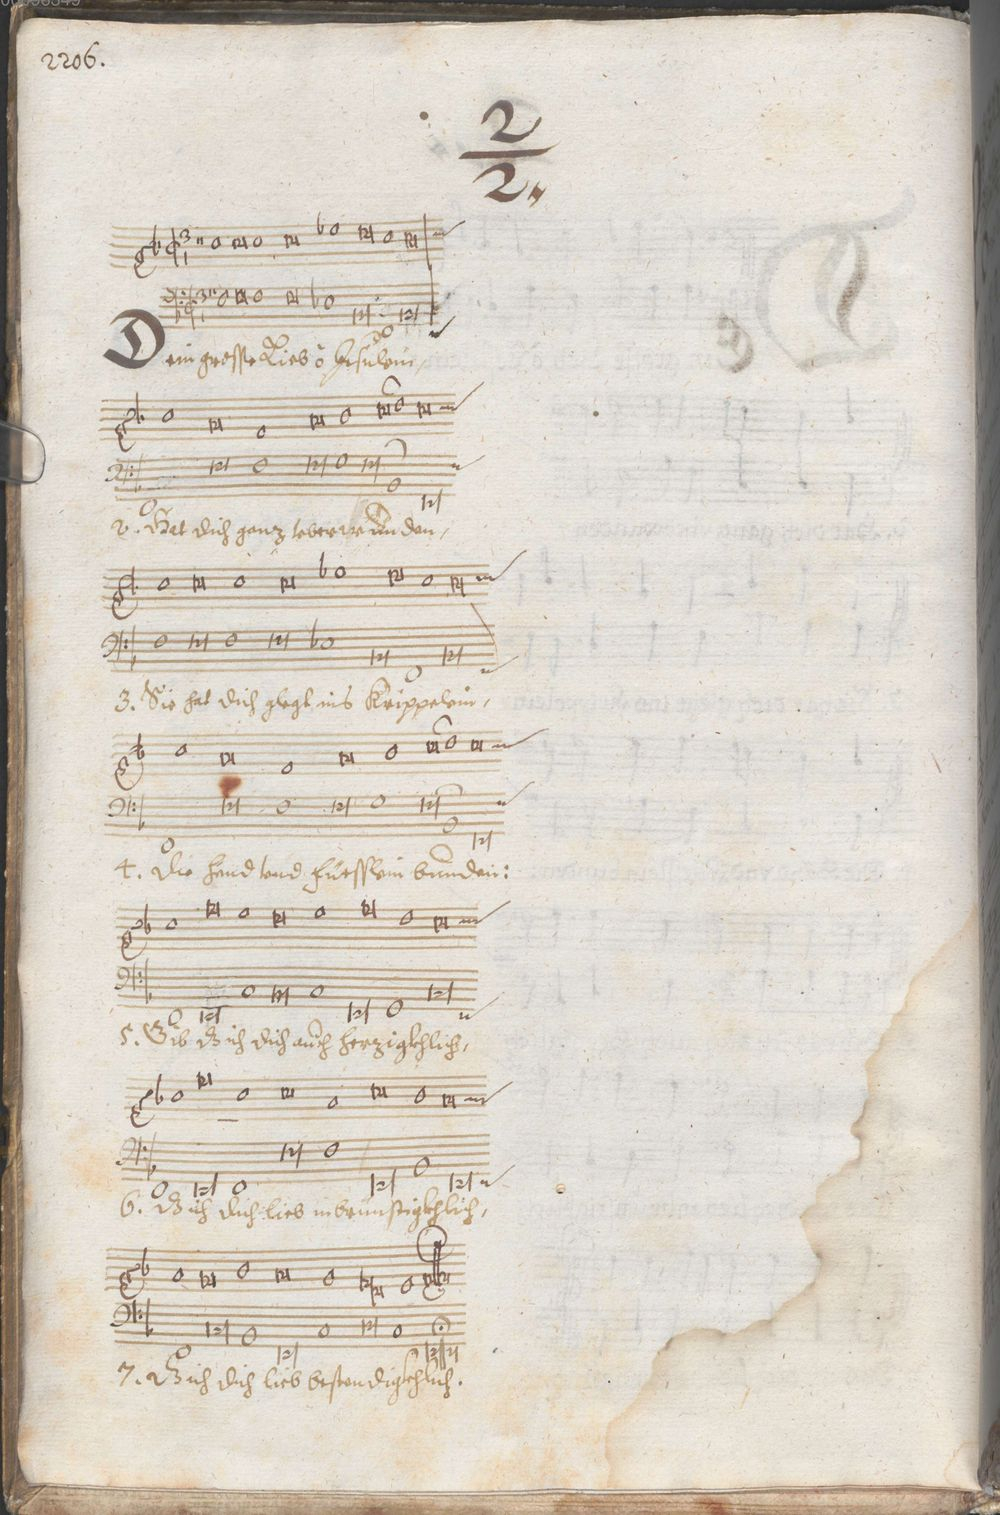 2206.
2
2.
Dein grosse Lieb ô Jesulein,
2. Hat dich ganz vberwunden,
3. Sie hat dich glegt ins Krippelein,
4. Die Hend vnd Füesslein bunden:
5. Gib dz ich dich auch herzigkhlich,
6. Dz ich dich lieb inbrünstigkhlich,
7. Dz ich dich lieb bestendigkhlich.